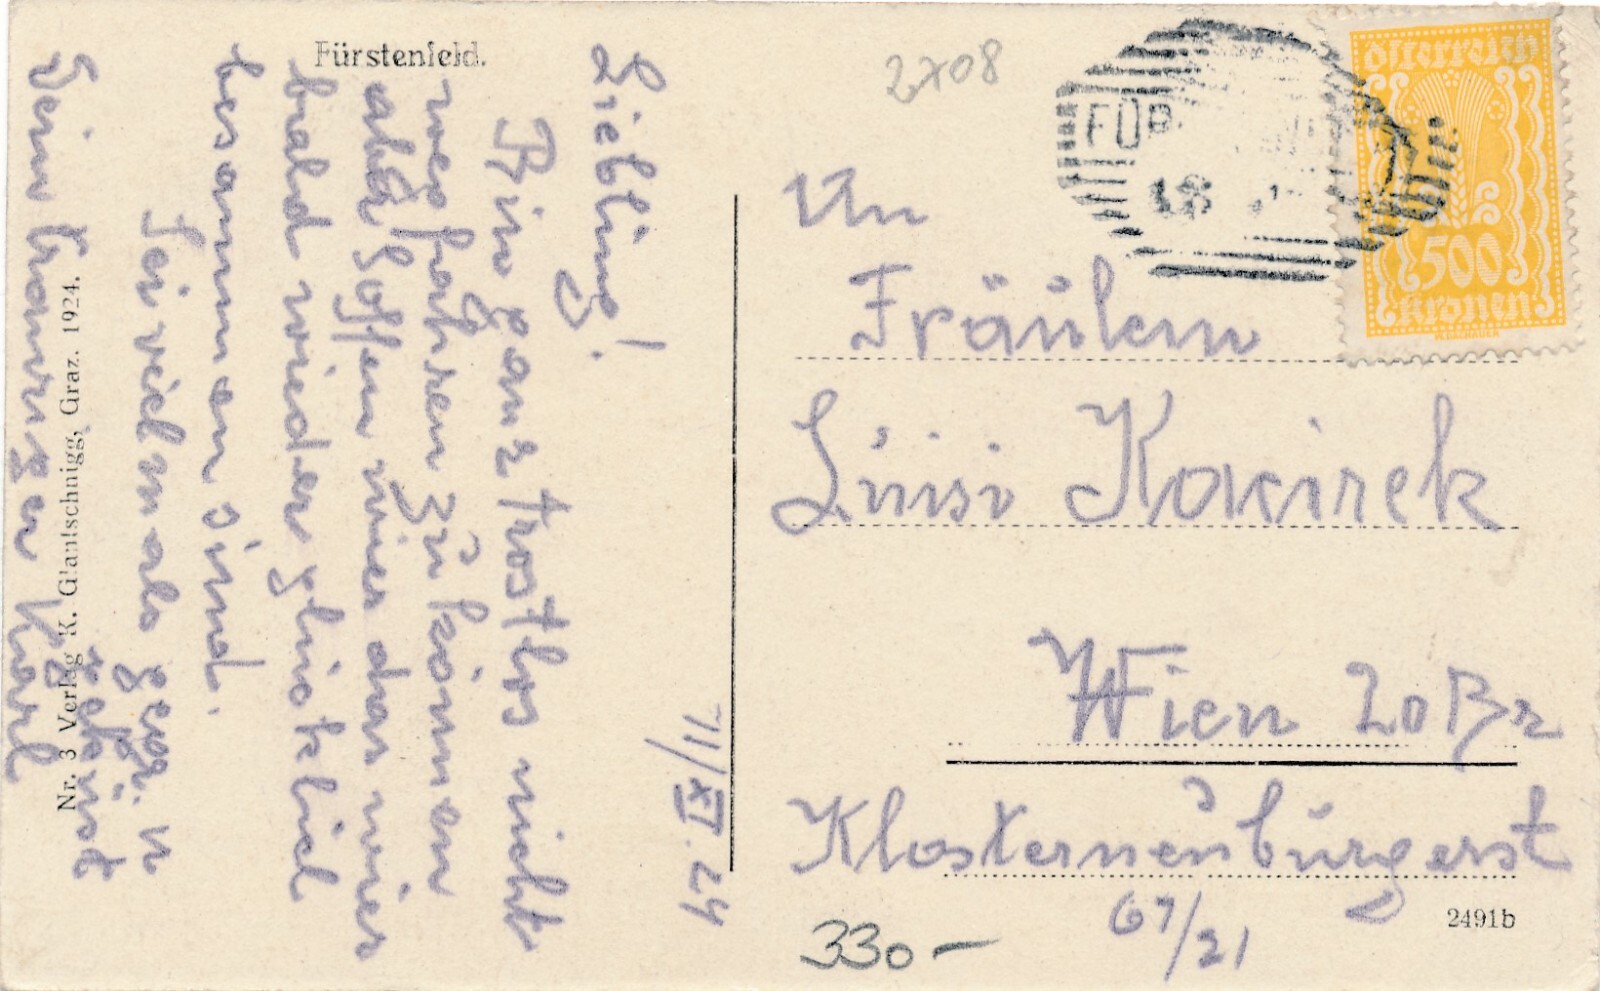 Fürstenfeld.
11/XI. 24
Liebling!
Bin ganz trostlos nicht
wegfahren zu können
aber hoffen wier das wier
bald wieder glücklich
besammen sind.
Sei vielmals gegr. u
geküst
Dein trauriger Karl
Nr. 3 Verlag K. Glantschnigg, Graz. 1924.
2708
FÜR
18
Österreich
500
Kronen
An
Fräulein
Luisi Kacirek
Wien 20 Bz
Klosterneuburgerst
67/21
330-
2491b